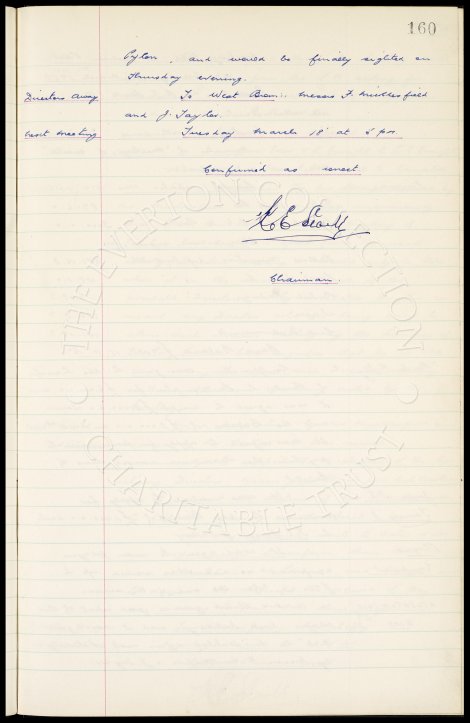 160
Pylon, and would be finally sighted on
Thursday evening.
Directors away To West Brom: Messrs F. Micklesfield
and J. Taylor.
Next Meeting Tuesday March 18 at 5 pm
Confirmed as correct
Chairman.
© THE EVERTON COLLECTION
CHARITABLE TRUST